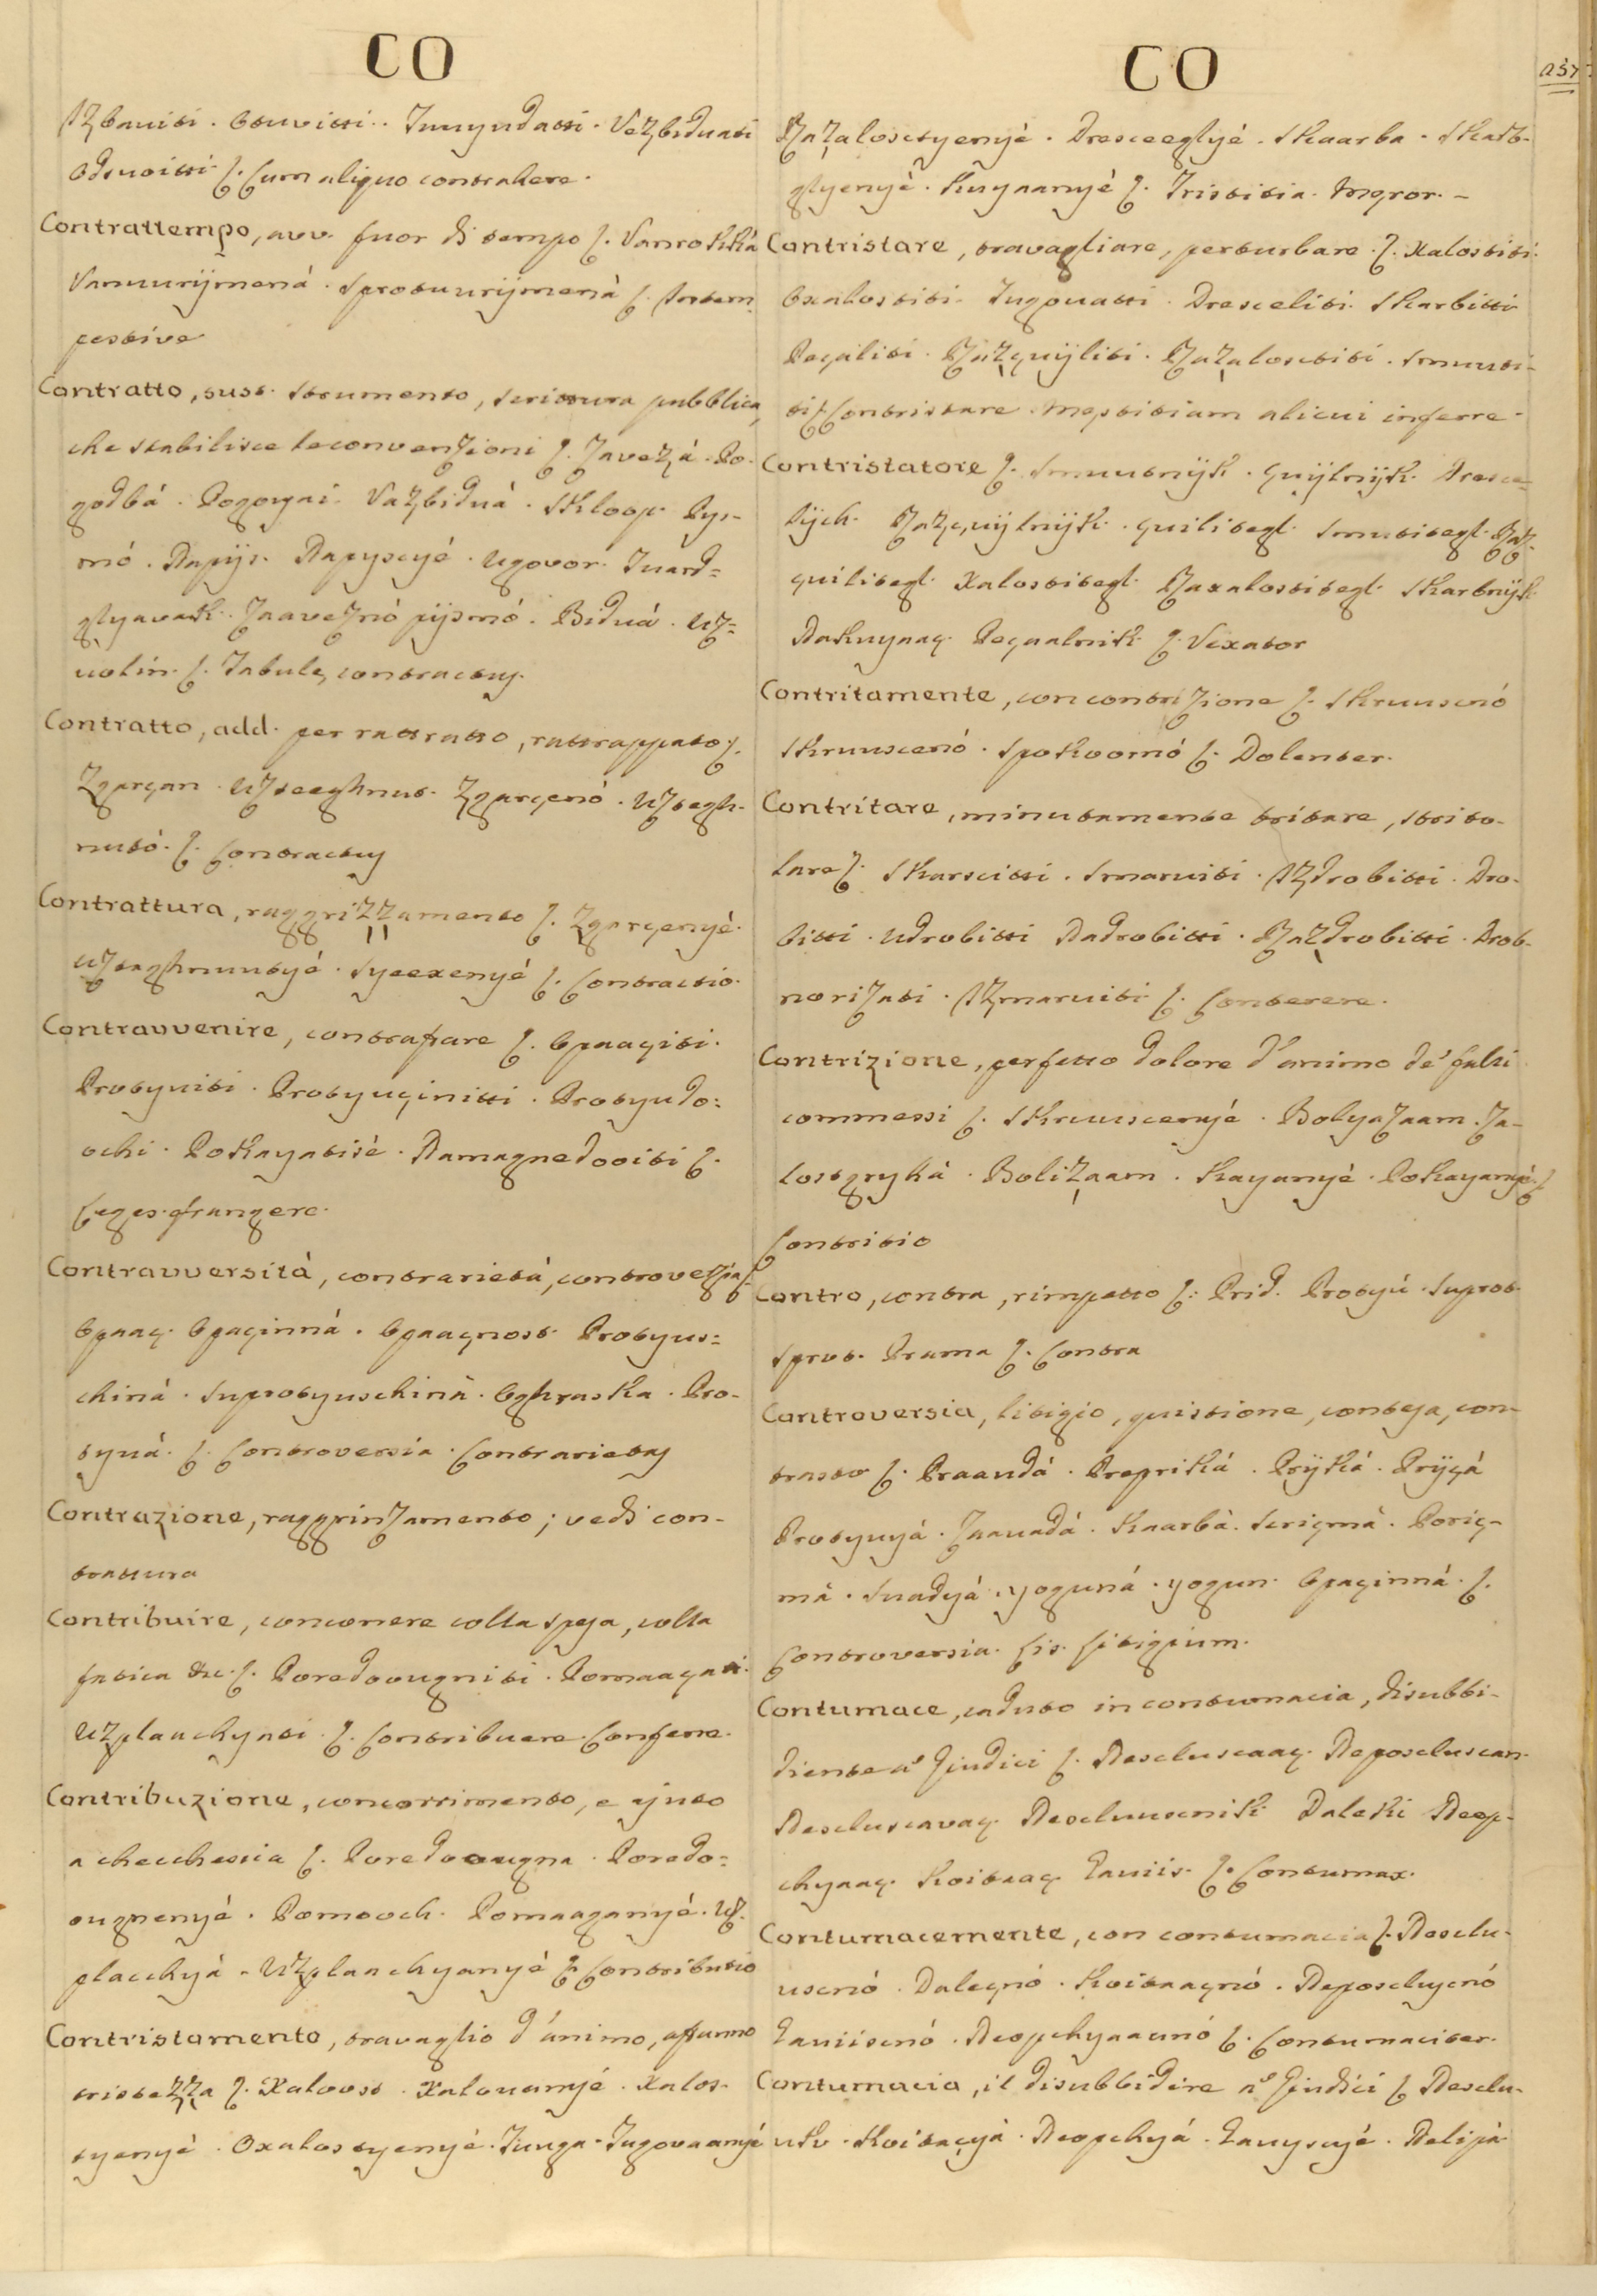 CO
Izbaviti. Otuvitti. Tuuyudatti. Vezbiduati
Odsuoitti ſ. Cum aliquo contrahere.
Contrattempo, avv. fuor di tempo ſ. Vanrokká
Vanuurijmená. Sprotuurijmená ſ. Intem-
pestive
Contratto, sust. strumento, scrittura pubblica,
che stabilisce le convenzioni ſ. Zavezá. Po-
godbá. Pogoyai. Vazbiduá. Skloop. Pys-
mó. Napijs. Napyscyé. Ugovor. Tuard-
glyavak. Zaaveznó pijsmó. Biduá. Uz-
uolin. ſ. Tabule contractus.
Contratto, add. per rattratto, rattrappato ſ.
Zgarçan. Uzteeghnut. Zgarçenó. Uztegh-
nutó. ſ. Contractus
Contrattura, raggrizzamento ſ. Zgarçenyé.
Uzteghnuutyé. Syeexenyé ſ. Contractio.
Contravvenire, contrafare ſ. Opaaçiti.
Protyuiti. Protyuçinitti. Protyudo-
ochi. Pokayatisè. Namagnedooiti ſ.
Leges frangere.
Contravversità, contrarietà, controversia ſ.
Opaaç. Opaçinná. Opaaçnost. Protyus-
chiná. Suprotyuschinà. Oghraska. Pro-
tyuá. ſ. Controversia. Contrarietas
Contrazione, raggrinzamento; vedi con-
trattura
Contribuire, concorrere colla spesa, colla
fatica &c. ſ. Poredoougniti. Pomaagati.
Uzplaachyati. ſ. Contribuere. Conferre.
Contribuzione, concorrimento, e ajuto
a checchessia ſ. Poredoougna. Poredo-
ougnenyé. Pomooch. Pomaaganyé. Uz-
placchyá. Uzplaachyanyé ſ. Contributio
Contristamento, travaglio d'animo, affanno
tristezza ſ. Xaloost. Xalouanyé. Xalos-
tyenyé. Oxalostyenyé. Tuuga. Tugovaanyé
CO
257
Razalosctyenyé. Dresceeglyé. Skaarba. Skarb-
glyenyé. Kuyaanyé ſ. Tristitia. Meror.
Contristare, travagliare, perturbare. ſ. Xalostiti.
Oxalostiti. Tugouatti. Dresceliti. Skarbitti
Peçaliti. Razçuijliti. Razalosctiti. Smuuti-
ti ſ. Contristare. Mestitiam alicui inferre.
Contristatore ſ. Smuutnijk. Çuijlnijk. Dresce-
Razçuijlnijk. çuilitegl. Smutitegl. Raz-
çuilitegl. Xalostitegl. Razalostitegl. Skarbnijk
Nakuyaaç. Peçaalnik ſ. Vexator
Contritamente, con contrizione ſ. Skruuscnó
Skruuscenó. Spokoornó ſ. Dolenter.
Contritare, minutamente tritare, strito-
lare ſ. Skarscitti. Smaruiti. Izdrobitti. Dro-
bitti. Udrobitti Nadrobitti. Razdrobitti. Drob-
norizati. Izmaruiti ſ. Conterere.
Contrizione, perfetto dolore d'animo de' falli
commessi ſ. Skruuscenyé. Bolyazaam. Za-
lostgryhà. Bolizaam. Kayanyé. Pokayanyé. ſ.
Contritio
Contro, contra, rimpetto ſ. Prid. Protyú. Suprot.
Sprot. Prama ſ. Contra
Controversia, litigio, quistione, contesa, con-
trasto ſ. Praaudá. Prepriká. Prijká. Prijçá
Protyuyá. Zaauadá. Kaarbà. Scriçmá. Poriç-
má. Suadyá. yoguná. yogun. Opaçinná. ſ.
Controversia. Lis. Litigium.
Contumace, caduto in contumacia, disubbi-
diente a' Giudici ſ. Nescluscaaç. Neposcluscan.
Nescluscavaç. Nescluuscnik. Daleki Neop-
chyaaç. Koitaaç. Lauiis. ſ. Contumax.
Contumacemente, con contumacia ſ. Nesclu-
uscnó. Daleçnó. Koitaaçnó. Neposclyçnó
Lauiiscnó. Neopchyaaçnó ſ. Contumaciter.
Contumacia, il disubbidire a' Giudici ſ. Nesclu-
uku. Koitaçyà. Neopchyá. Lauyscyé. Nelipà